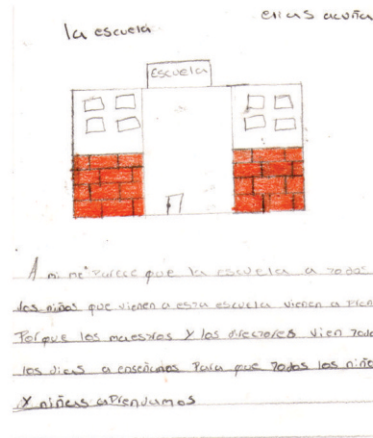 la escuela
elias acuña
Escuela
A mi me parece que la escuela a todos
los niños que vienen a esta escuela vienen a Pren
Porque los maestros y los directores vien todo
los dias a enseñarnos Para que todos los niño
y niñas aPrendamos